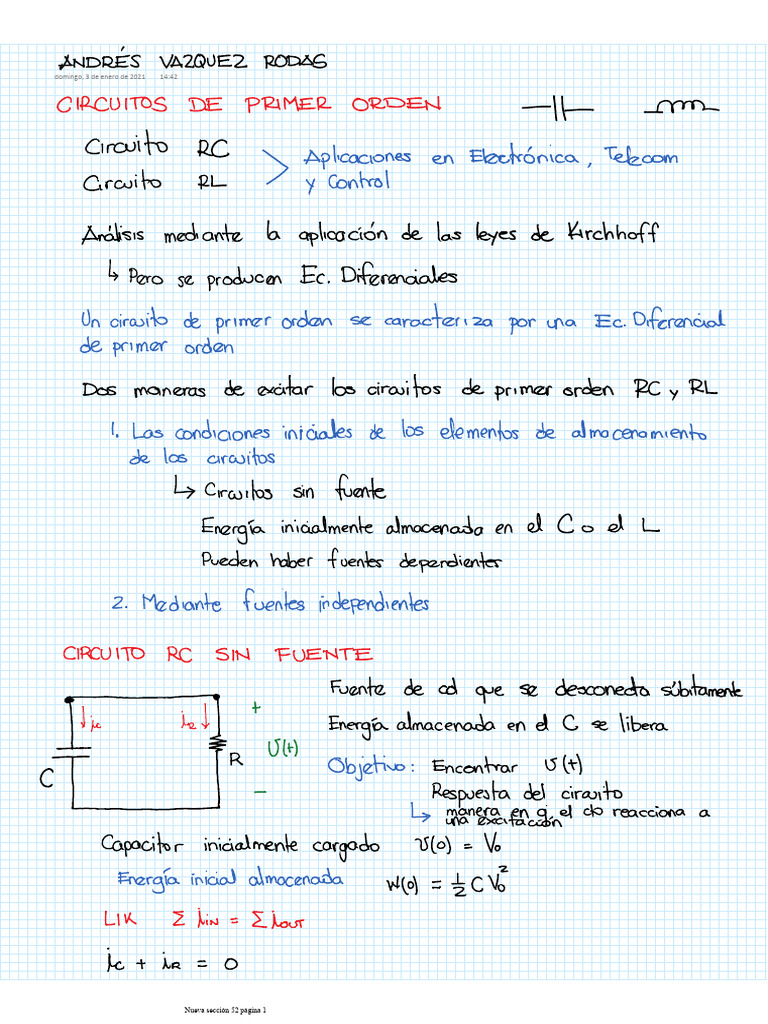 ANDRÉS VAZQUEZ RODAS
domingo, 3 de enero de 2021 14:42
CIRCUITOS DE PRIMER ORDEN
Circuito RC
Circuito RL
Aplicaciones en Electrónica, Telecom
y Control
Análisis mediante la aplicación de las leyes de Kirchhoff
↳ Pero se producen Ec. Diferenciales
Un circuito de primer orden se caracteriza por una Ec. Diferencial
de primer orden
Dos maneras de excitar los circuitos de primer orden RC y RL
1. Las condiciones iniciales de los elementos de almacenamiento
de los circuitos
↳ Circuitos sin fuente
Energía inicialmente almacenada en el C o el L
Pueden haber fuentes dependientes
2. Mediante fuentes independientes
CIRCUITO RC SIN FUENTE
Fuente de cd que se desconecta súbitamente
Energía almacenada en el C se libera
Objetivo: Encontrar v(t)
Respuesta del circuito
↳ manera en q el ckto reacciona a
una excitación
C
ic
iR
R
+
v(t)
−
Capacitor inicialmente cargado v(0) = V₀
Energía inicial almacenada w(0) = ½ C V₀²
LIK Σ iIN = Σ iOUT
ic + iR = 0
Nueva sección 52 página 1